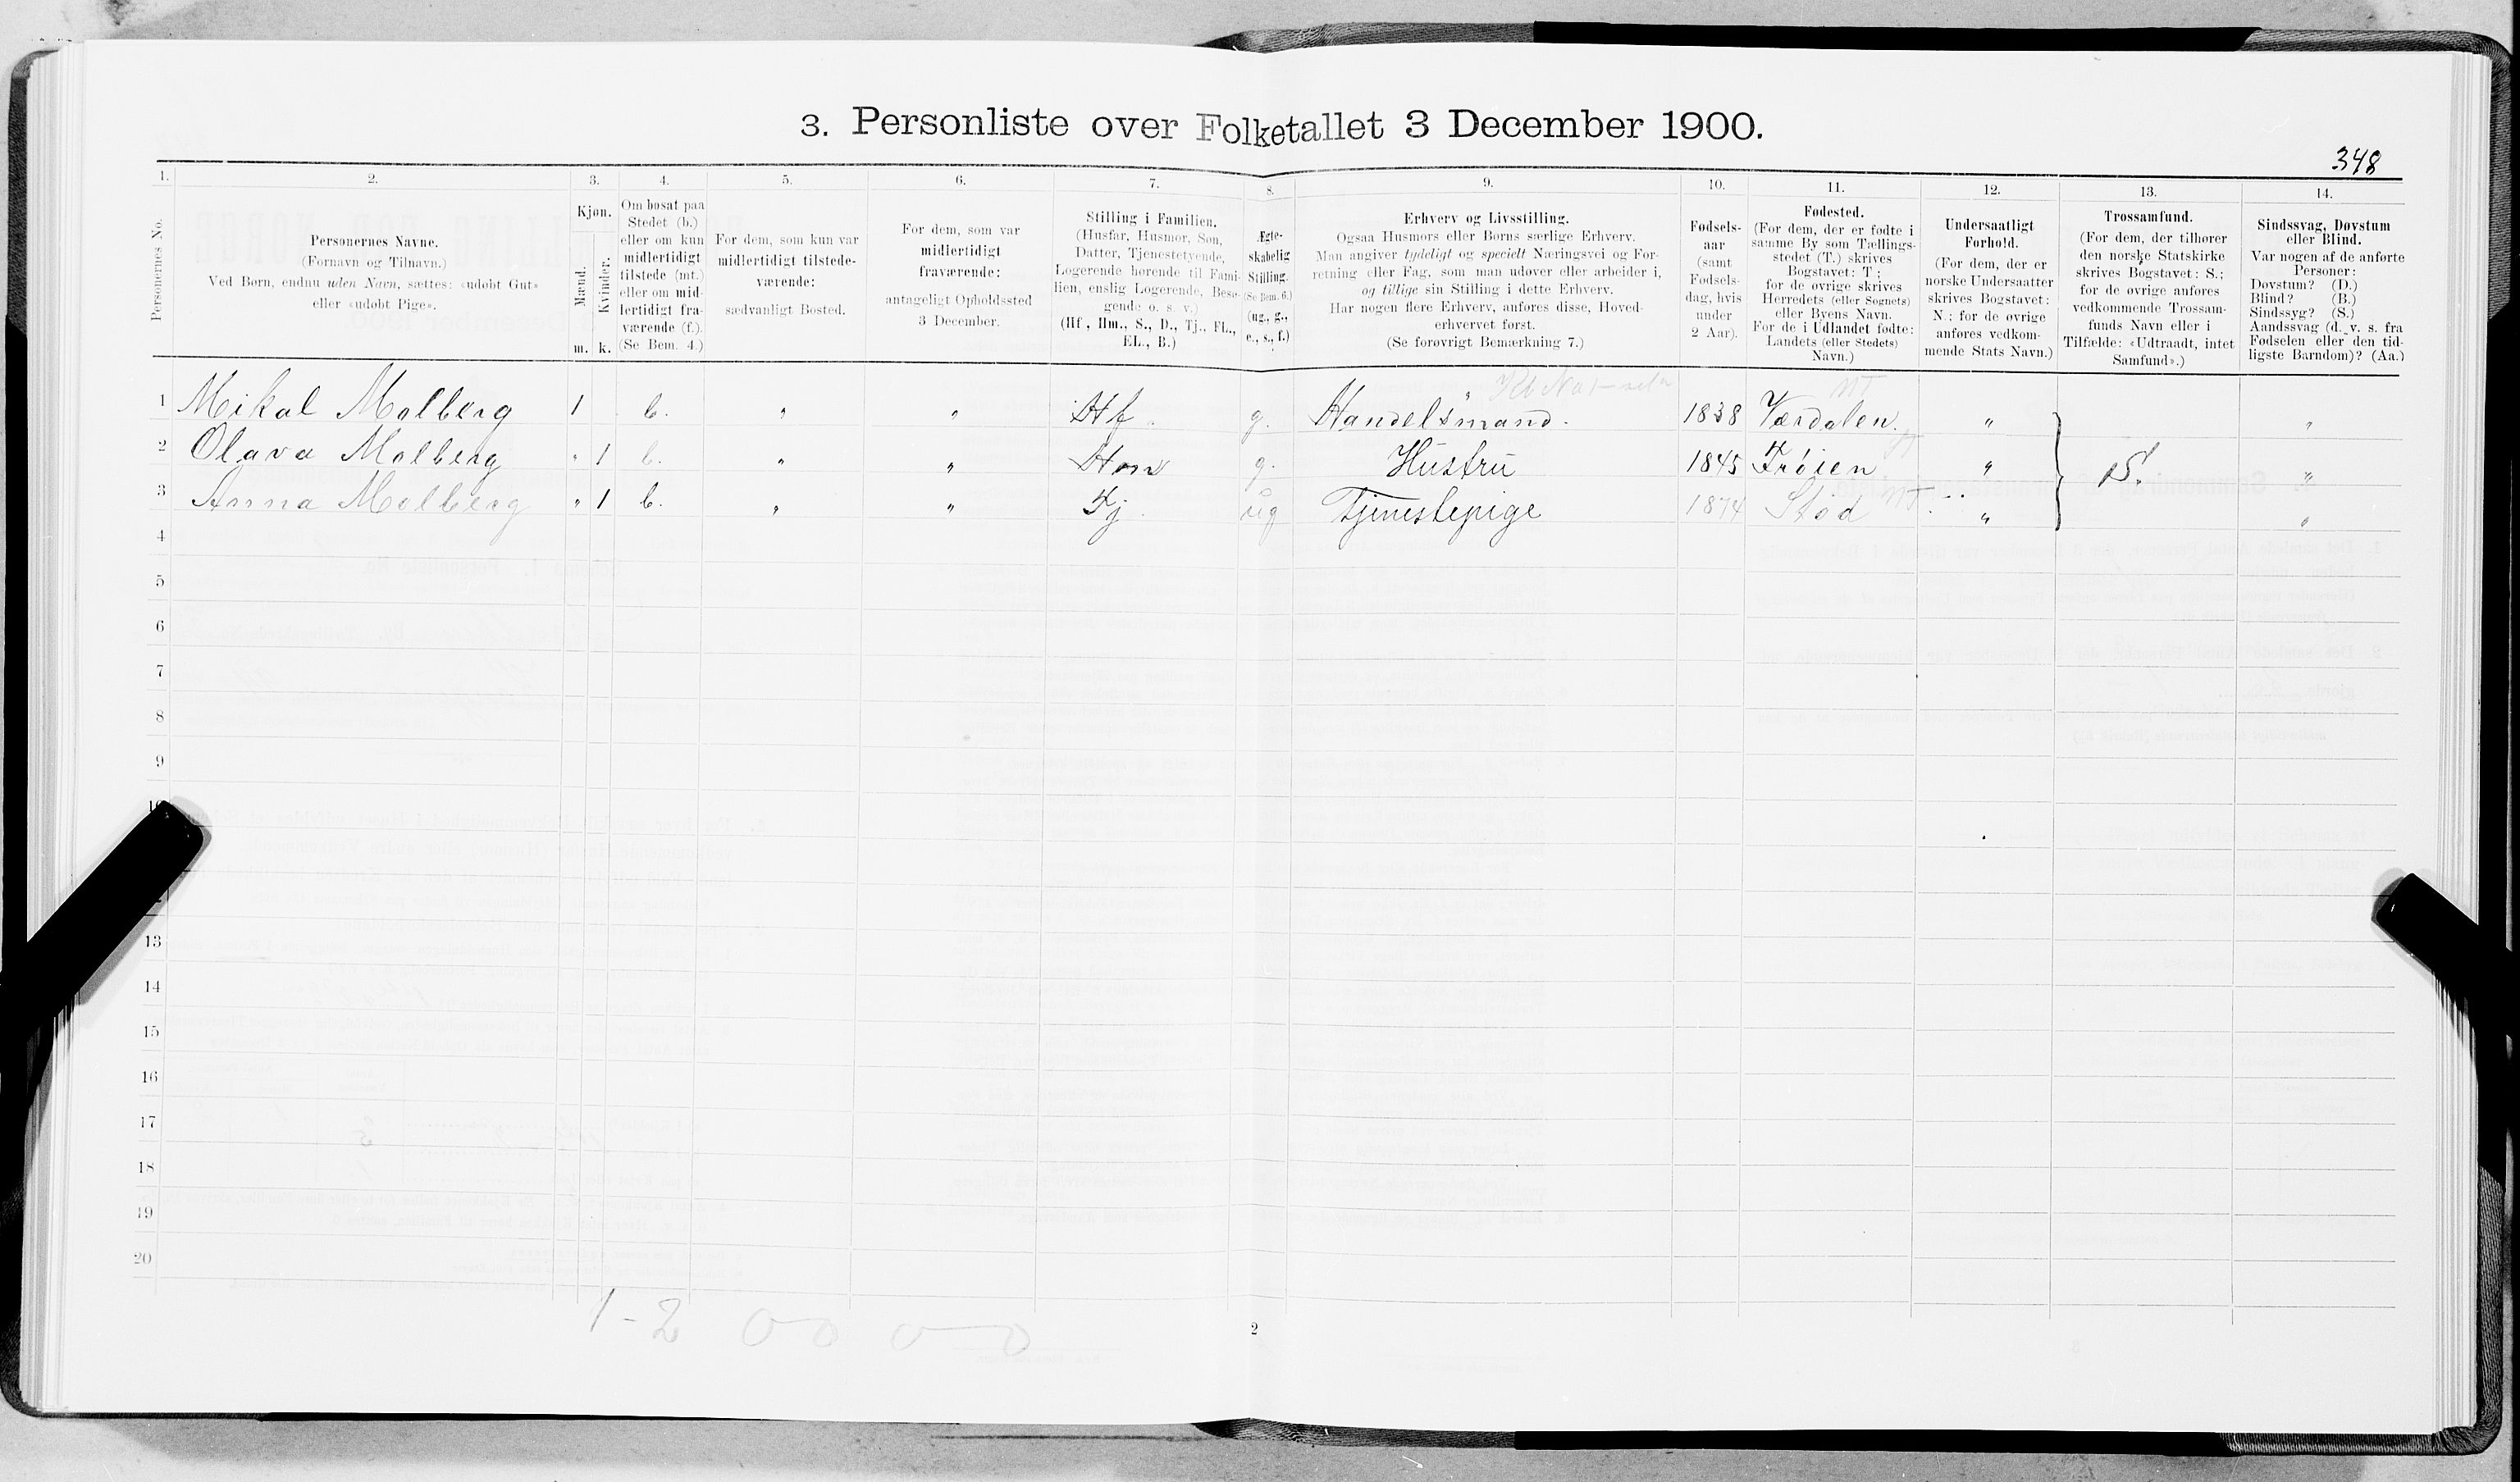 3. Personliste over Folketallet 3 December 1900.
348
1. 2. 3. 4. 5. 6. 7. 8. 9. 10. 11. 12. 13. 14.
Personernes No.
Personernes Navne.
(Fornavn og Tilnavn.)
Ved Børn, endnu uden Navn, sættes: «udøbt Gut»
eller «udøbt Pige».
Kjøn.
Mænd.
Kvinder.
m. k.
Om bosat paa
Stedet (b.)
eller om kun
midlertidigt
tilstede (mt.)
eller om mid-
lertidigt fra-
værende (f.).
(Se Bem. 4.)
For dem, som kun var
midlertidigt tilstede-
værende:
sædvanligt Bosted.
For dem, som var
midlertidigt
fraværende:
antageligt Opholdssted
3 December.
Stilling i Familien.
(Husfar, Husmor, Søn,
Datter, Tjenestetyende,
Logerende hørende til Fami-
lien, enslig Logerende, Besø-
gende o. s. v.)
(Hf., Hm., S., D., Tj., FL.,
EL., B.)
Ægte-
skabelig
Stilling.
(Se Bem. 6.)
(ug., g.,
e., s., f.)
Erhverv og Livsstilling.
Ogsaa Husmors eller Børns særlige Erhverv.
Man angiver tydeligt og specielt Næringsvei og For-
retning eller Fag, som man udøver eller arbeider i,
og tillige sin Stilling i dette Erhverv.
Har nogen flere Erhverv, anføres disse, Hoved-
erhvervet først.
(Se forøvrigt Bemærkning 7.)
Fødsels-
aar
(samt
Fødsels-
dag, hvis
under
2 Aar).
Fødested.
(For dem, der er fødte i
samme By som Tællings-
stedet (T.) skrives
Bogstavet: T;
for de øvrige skrives
Herredets (eller Sognets)
eller Byens Navn.
For de i Udlandet fødte:
Landets (eller Stedets)
Navn.)
Undersaatligt
Forhold.
(For dem, der er
norske Undersaatter
skrives Bogstavet:
N.; for de øvrige
anføres vedkom-
mende Stats Navn.)
Trossamfund.
(For dem, der tilhører
den norske Statskirke
skrives Bogstavet: S.;
for de øvrige anføres
vedkommende Trossam-
funds Navn eller i
Tilfælde: «Udtraadt, intet
Samfund».)
Sindssvag, Døvstum
eller Blind.
Var nogen af de anførte
Personer:
Døvstum? (D.)
Blind? (B.)
Sindssyg? (S.)
Aandssvag (d. v. s. fra
Fødselen eller den tid-
ligste Barndom)? (Aa.)
NT
1 Mikal Molberg 1 b. " " Hf. g. Handelsmand. 1838 Værdalen. " "
2 Olava Molberg " 1 b. " " Hm g. Hustru 1845 Frøien " S. "
3 Anna Molberg " 1 b. " " Tj. ug Tjenestepige 1874 Stod NT " "
4
5
6
7
8
9
13
14
15
16
17
18
19
20
1-2 0 0 0 0
2